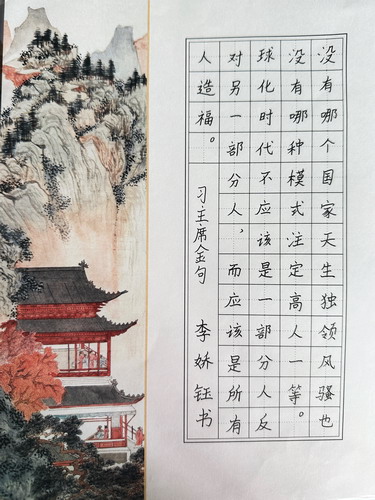 没有哪个国家天生独领风骚也
没有哪种模式注定高人一等。
球化时代不应该是一部分人反
对另一部分人，而应该是所有
人造福。
习主席金句 李娇钰书